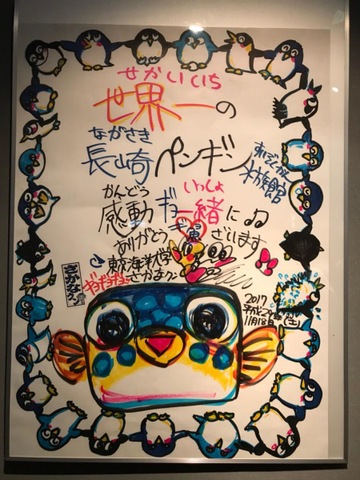 せかいいち
世界一の
ながさき
長崎ペンギン
すいぞくかん
水族館
かんどう いっしょ
感動ギョ一緒に
ありがとうギョざいます
東京海洋大学
さかなクン
ギョギョギョ
2017
11月18日(土)